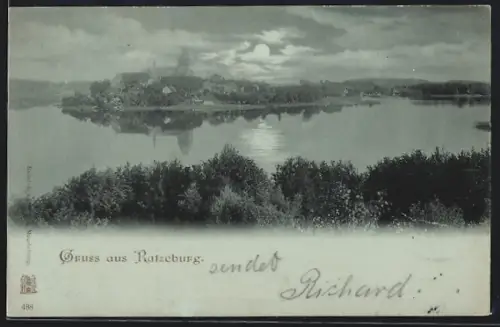 Gruss aus Ratzeburg.
sendet
Richard.
488